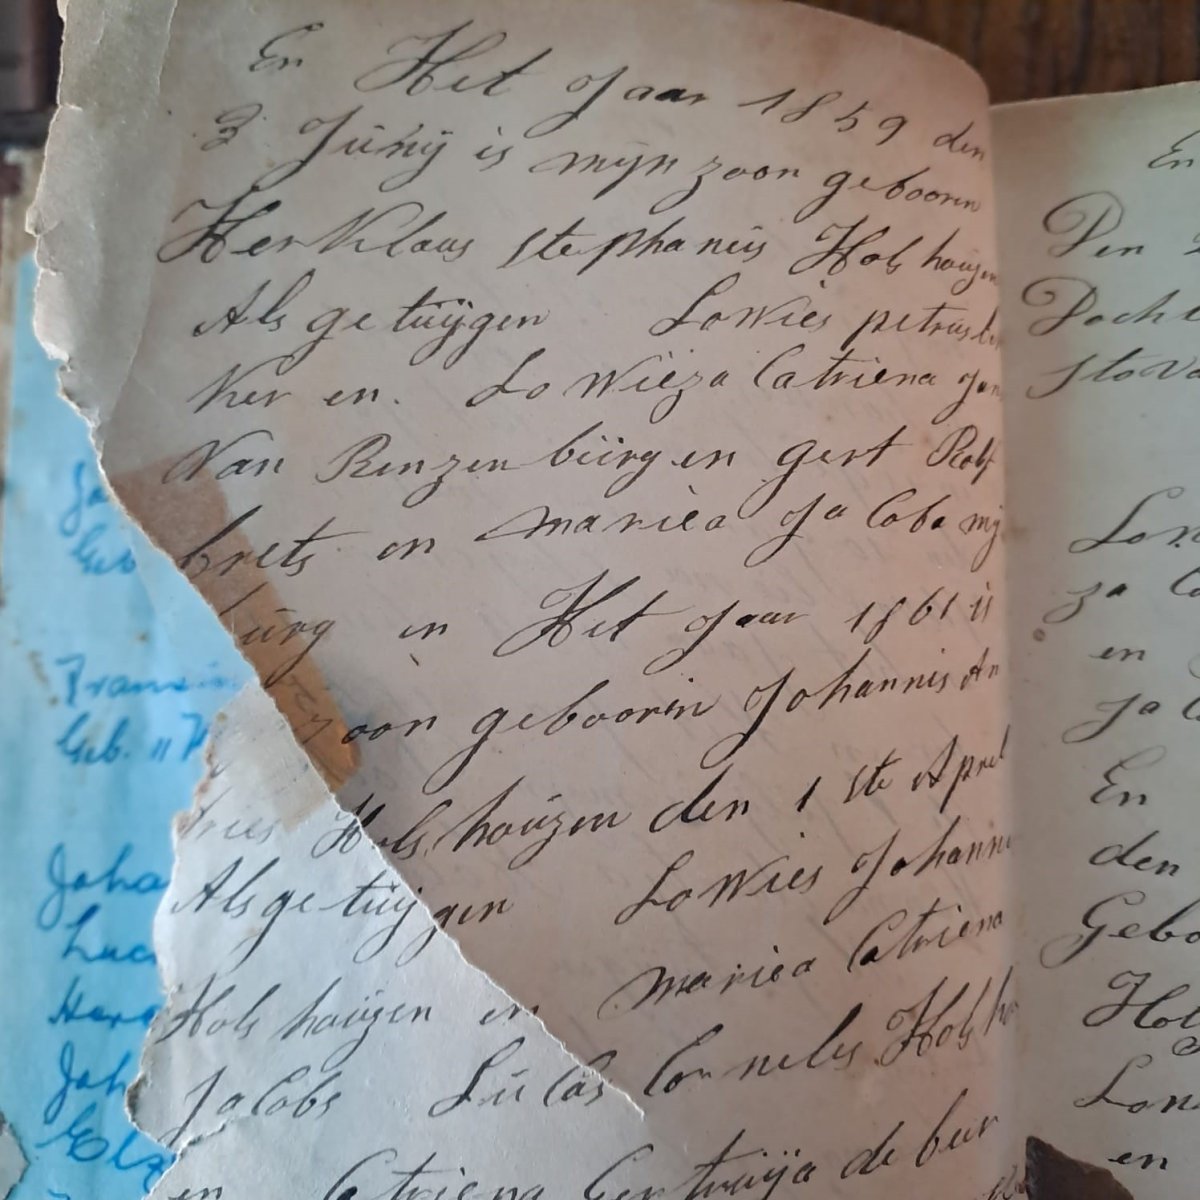 En Het Jaar 1859 den
3 Junij is mijn zoon geboorin
HerKlaas stephanus Holshouzen
Als getuijgen Lowies petrus
Ker en. Lowieza Catriena Jan
Van Renzenburgen gert Rob
brets en mariea Jacoba mij
burg en Het Jaar 1861 is
zoon geboorin Johannis An
dries Holshouzen den 1 ste April
Als getuijgen Lowies Johanni
Holshouzen en mariea Catriena
Jacobs Lucas Cornelis Holsho
en Catriena Gertruija de beer
En
Den
Docht
stova
Lon
za C
en
Ja C
En
den
Gebo
Hol
Lon
en
Ja
Geb
Fransin
Geb. 11
Joha
Luc
Herc
Joh
Elz